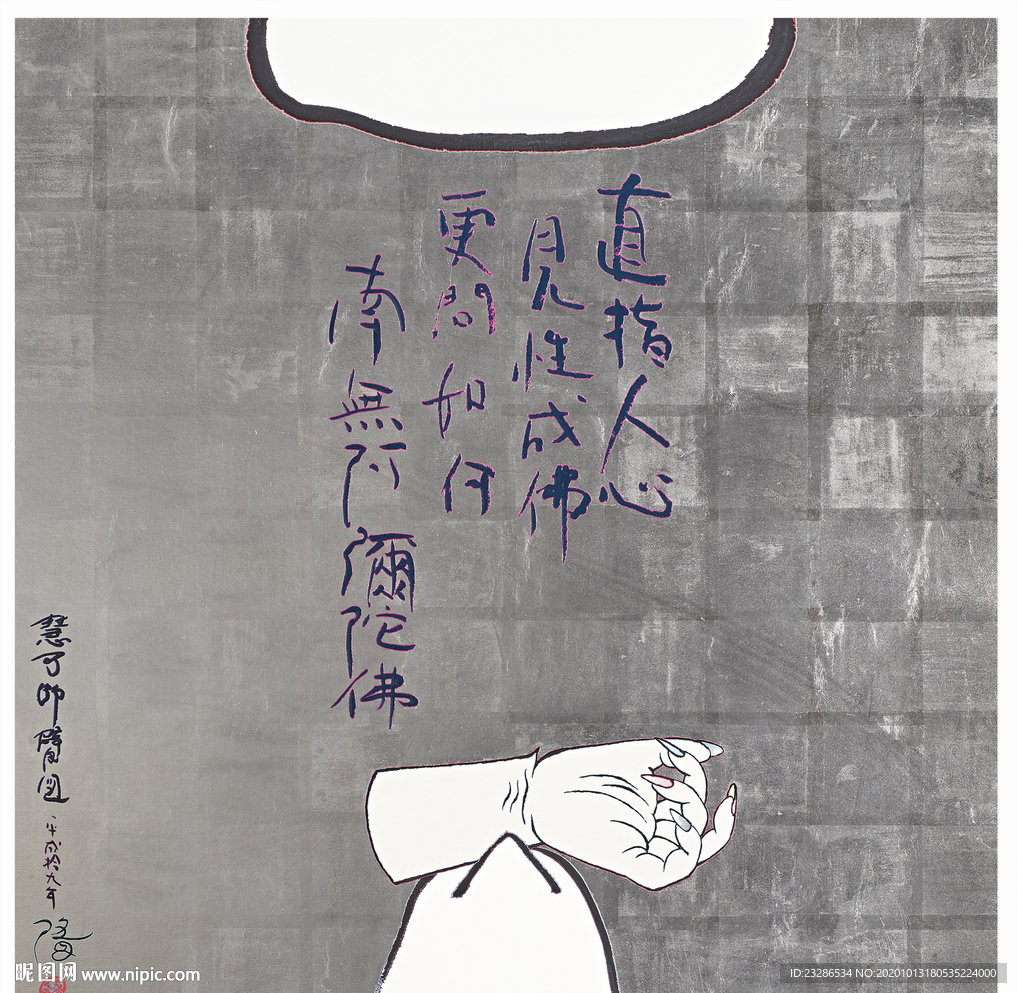 直指人心
見性成佛
更問如何
南無阿彌陀佛
慧可師臂図
平成拾九年
隆
昵图网 www.nipic.com
ID:23286534 NO:20201013180535224000